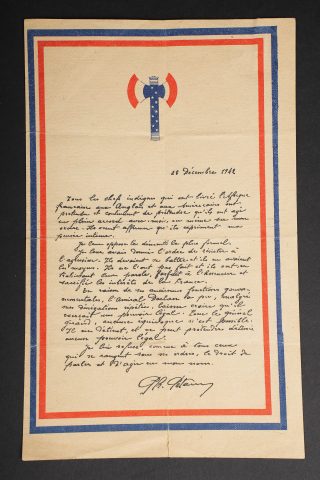 28 Décembre 1942
Tous les chefs indignes qui ont livré l'Afrique
française aux Anglais et aux Américains ont
prétendu et continuent de prétendre qu'ils ont agi
en plein accord avec moi, ou même sur mon
ordre. Ils osent affirmer qu'ils expriment ma
pensée intime.
Je leur oppose le démenti le plus formel.
Je leur avais donné l'ordre de résister à
l'agression. Ils devaient se battre et ils en avaient
les moyens. Ils ne l'ont pas fait et ils ont
leur parole, forfait à l'honneur et
sacrifié les intérêts de la France.
En raison de ses anciennes fonctions gouver-
nementales, l'Amiral Darlan a pu, malgré
sa dissidence, laisser croire qu'il
exerçait un pouvoir légal. Pour le général
Giraud, aucune équivoque n'est possible.
Il ne détient, et ne peut prétendre détenir
aucun pouvoir légal.
Je lui refuse, comme à tous ceux
qui se rangent sous ses ordres, le droit de
parler et d'agir en mon nom.
Ph. Pétain